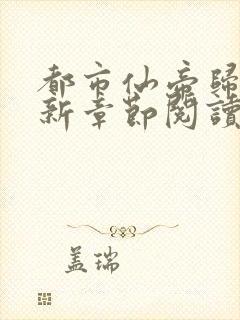 都市仙帝歸
新章節閱讀
盖瑞